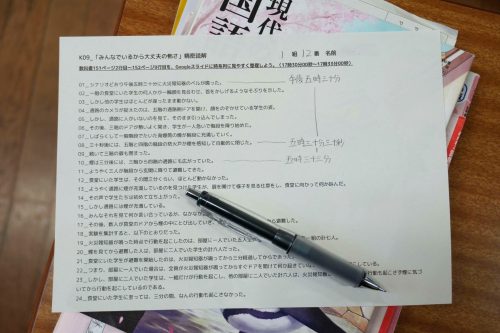 現代
国語
K09_「みんなでいるから大丈夫の怖さ」精密読解
1組 12番 名前
教科書151ページ2行目～152ページ9行目を、Googleスライドに時系列に見やすく整理しよう。(17時30分00秒～17時33分00秒)
01_シナリオどおり午後五時三十分に火災報知器のベルが鳴った。
午後五時三十分
02_一部の食堂にいた学生の何人かが一瞬顔を見合わせ、首をかしげるようなそぶりを示した。
03_しかし他の学生はほとんどが座ったまま動かない。
04_通路のカメラが捉えたのは、五階の通路側ドアを開け、顔をのぞかせている学生の姿。
05_しかし、通路に人がいないのを見て、そのまま引っ込んでしまった。
06_その後、三階のドアが勢いよく開き、学生が一人急いで階段を降り始めた。
07_しばらくして一階階段でたいた発煙筒の煙が階段に充満していく。
08_三十秒後には、五階と四階の階段の防火戸が煙を感知して自動的に閉じた。
五時三十分三十秒
09_続いて三階の扉も閉まった。
10_煙は三分後には、三階から四階の通路にも広がっていた。
五時三十三分
11_ようやく三人が階段から玄関に降りて避難してきた。
12_食堂にいた学生は、その間三分ぐらい、ほとんど動かなかった。
13_ようやく通路に煙が充満しているのを見つけた学生が、扉を開けて様子を見る仕草をし、食堂に向かって何か叫んだ。
14_その声で学生たちは初めて立ち上がった。
15_しかし通路には煙が充満している。
16_みんなそれを見て何か言い合っているが、なかなか
17_その後、数人が食堂のドアから煙の中にとび出していき、
18_実験を集計すると、以下のとおりだった。
19_火災報知器が鳴った時点で行動を起こしたのは、部屋に一人でいた五人全
20_煙を見てから避難した人は、部屋に二人でいた学生の計六人だった。
21_食堂にいた学生が避難を開始したのは、火災報知器が鳴ってから三分経過してからであった。
22_つまり、部屋に一人でいた場合は、全員火災報知器が鳴ってからすぐドアを開けて何か起きてい
23_火災報知器が鳴ったとき、部屋に一人でいた学生は、一斉に行動を起こし、他の部屋に二人でいた計六人は、火災報知器が鳴っても起きず煙に気づいてから行動を起こしているのである。
24_食堂にいた学生に至っては、三分の間、なんの行動も起こさなかった。